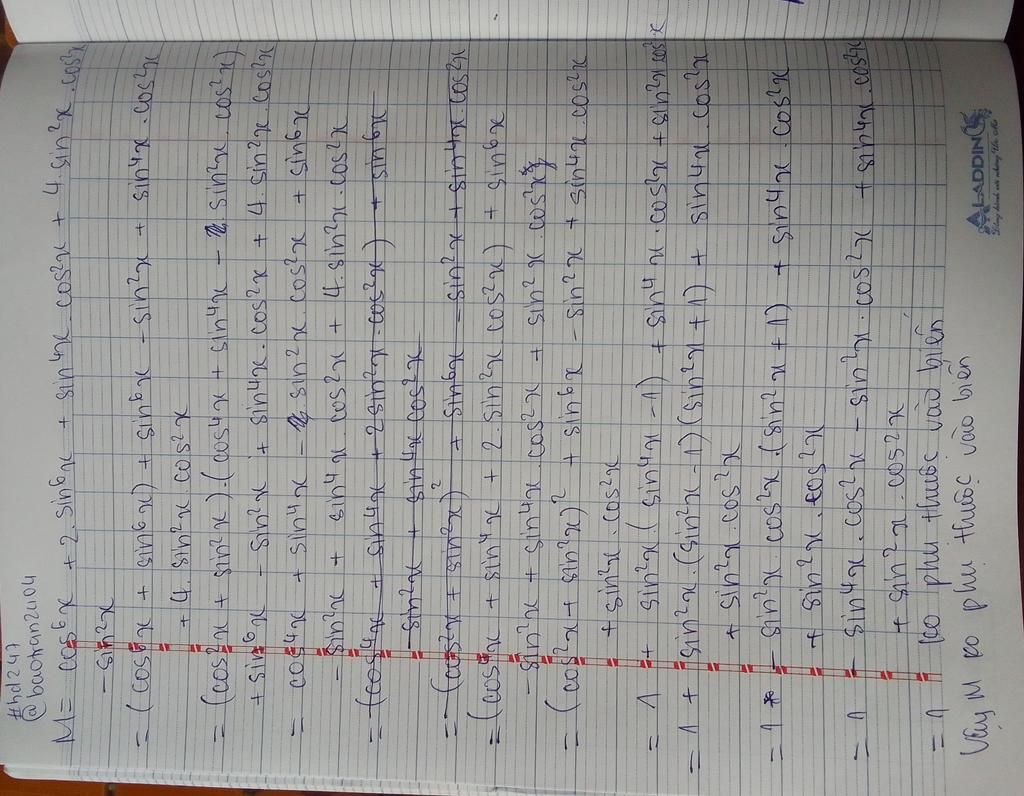 #hd247
@baotran2404
M = cos⁶x + 2.sin⁶x + sin⁴x.cos²x + 4.sin²x.cos²x
- sin²x
= (cos⁶x + sin⁶x) + sin⁶x - sin²x + sin⁴x.cos²x
+ 4.sin²x.cos²x
= (cos²x + sin²x).(cos⁴x + sin⁴x - sin²x.cos²x)
+ sin⁶x - sin²x + sin⁴x.cos²x + 4.sin²x.cos²x
= cos⁴x + sin⁴x - sin²x.cos²x + sin⁶x
- sin²x + sin⁴x.cos²x + 4.sin²x.cos²x
= (cos⁴x + sin⁴x + 2sin²x.cos²x) + sin⁶x
- sin²x + sin⁴x cos²x
= (cos²x + sin²x)² + sin⁶x - sin²x + sin⁴x cos²x
= (cos⁴x + sin⁴x + 2.sin²x.cos²x) + sin⁶x
- sin²x + sin⁴x.cos²x + sin²x.cos²x
= (cos²x + sin²x)² + sin⁶x - sin²x + sin⁴x.cos²x
+ sin²x.cos²x
= 1 + sin²x.(sin⁴x - 1) + sin⁴x.cos²x + sin²x cos²x
= 1 + sin²x.(sin²x - 1)(sin²x + 1) + sin⁴x.cos²x
+ sin²x.cos²x
= 1 - sin²x.cos²x.(sin²x + 1) + sin⁴x.cos²x
+ sin²x.cos²x
= 1 - sin⁴x.cos²x - sin²x.cos²x + sin⁴x.cos²x
+ sin²x.cos²x
= 1 ko phụ thuộc vào biến
Vậy M ko phụ thuộc vào biến
ALADDIN